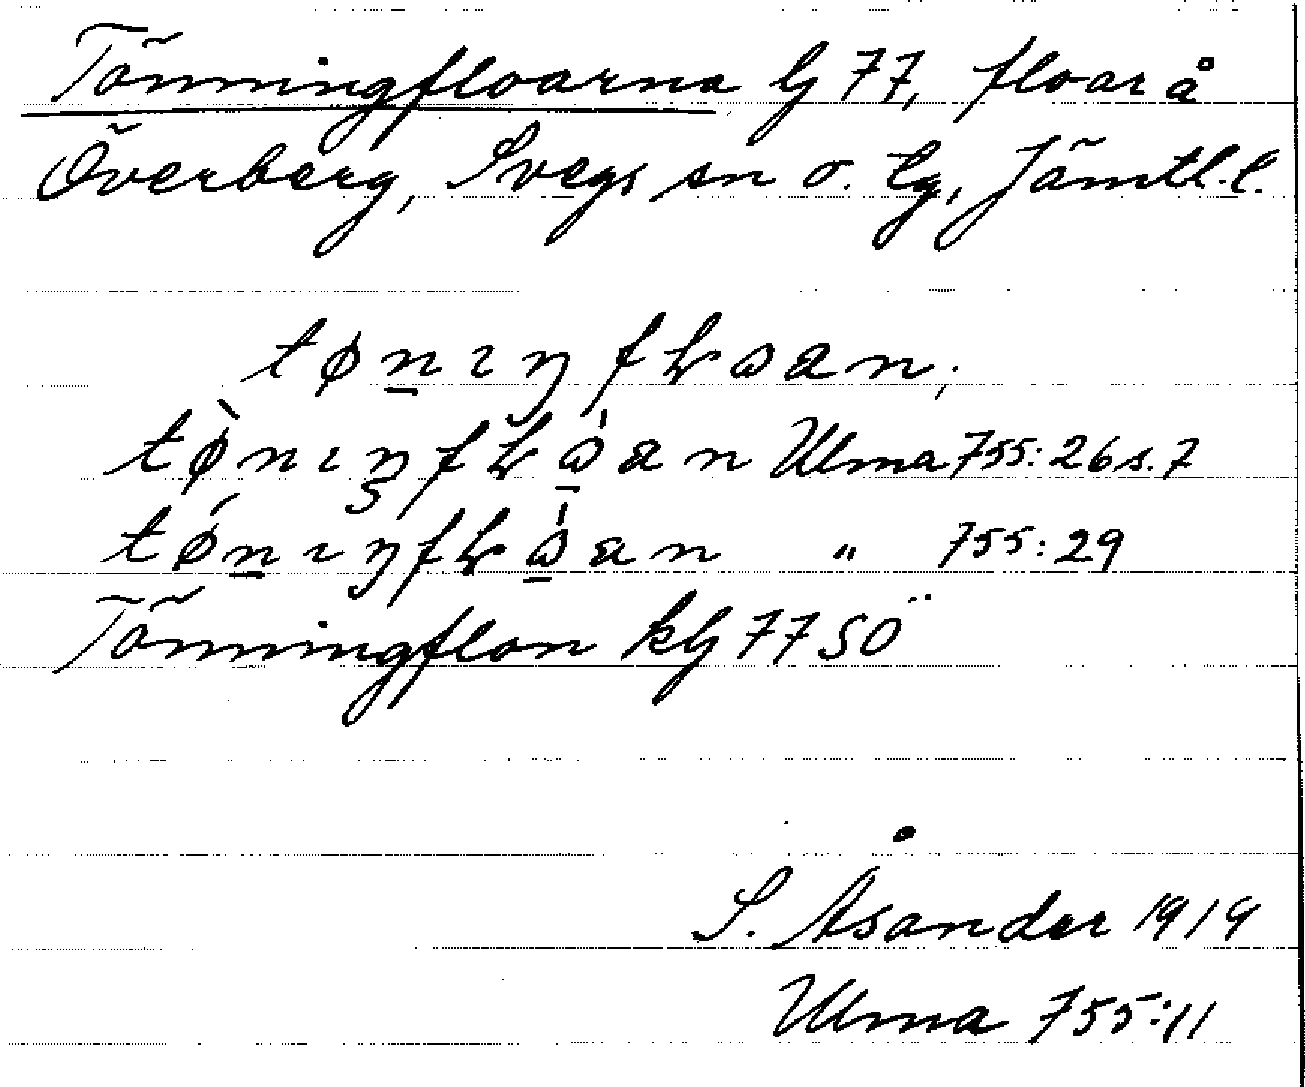 Tönningfloarna lj 77, floar å
Överberg, Svegs sn o. tg, Jämtl. l.
tøn̲ıŋfɬɷan,
tø̀nıŋfɬɷ̲̀an Ulma 755:26 s. 7
tǿn̲ıŋfɬɷ̲́an " 755:29
Tönningflon klj 77 SÖ
S. Åsander 1919
Ulma 755:11